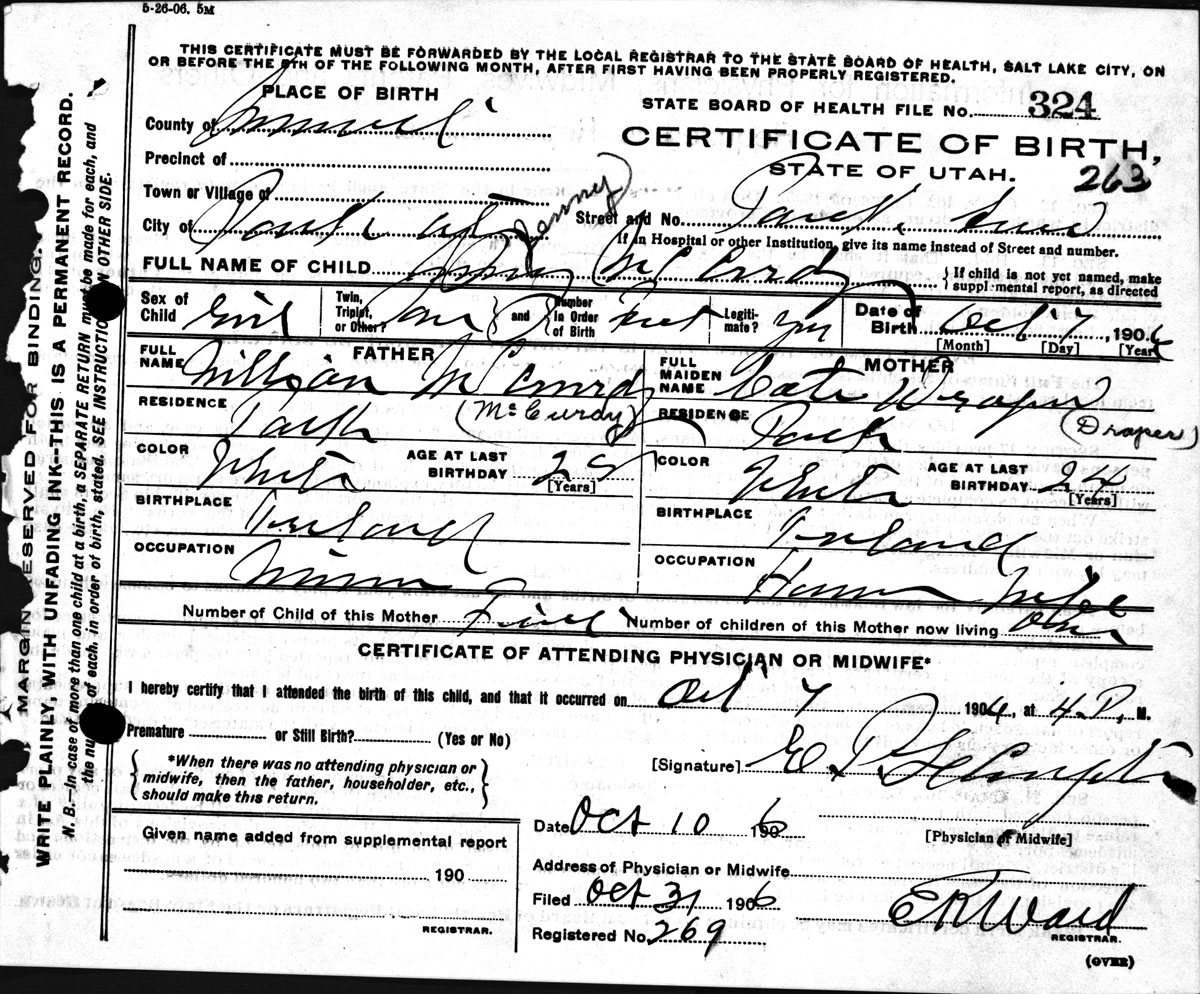 5-26-06. 5M
THIS CERTIFICATE MUST BE FORWARDED BY THE LOCAL REGISTRAR TO THE STATE BOARD OF HEALTH, SALT LAKE CITY, ON
OR BEFORE THE 5TH OF THE FOLLOWING MONTH, AFTER FIRST HAVING BEEN PROPERLY REGISTERED.
PLACE OF BIRTH
STATE BOARD OF HEALTH FILE No. 324
County of Summit
CERTIFICATE OF BIRTH,
Precinct of
STATE OF UTAH. 263
Town or Village of
City of Park City
Street and No. Park
If in Hospital or other Institution, give its name instead of Street and number.
(Jenny)
FULL NAME OF CHILD Jenny McCurdy
{ If child is not yet named, make supplemental report, as directed
Sex of Child Girl
Twin, Triplet, or Other?
{ and } Number in Order of Birth First
Legitimate? Yes
Date of Birth Oct 7, 1906
[Month] [Day] [Year]
FATHER
FULL NAME William McCurdy
(McCurdy)
RESIDENCE Park
COLOR White
AGE AT LAST BIRTHDAY
[Years]
BIRTHPLACE Ireland
OCCUPATION Miner
MOTHER
FULL MAIDEN NAME Cate Draper
(Draper)
RESIDENCE Park
COLOR White
AGE AT LAST BIRTHDAY 24
[Years]
BIRTHPLACE Ireland
OCCUPATION House Wife
Number of Child of this Mother First
Number of children of this Mother now living One
CERTIFICATE OF ATTENDING PHYSICIAN OR MIDWIFE*
I hereby certify that I attended the birth of this child, and that it occurred on Oct 7 1906, at 4 P. M.
Premature or Still Birth? (Yes or No)
{ *When there was no attending physician or midwife, then the father, householder, etc., should make this return. }
[Signature] E. P.
[Physician or Midwife]
Date Oct 10 1906
Given name added from supplemental report
190
REGISTRAR.
Address of Physician or Midwife
Filed Oct 31 1906
E R Ward
REGISTRAR.
Registered No. 269
(OVER)
MARGIN RESERVED FOR BINDING.
WRITE PLAINLY, WITH UNFADING INK-THIS IS A PERMANENT RECORD.
N.B.—In case of more than one child at a birth, a SEPARATE RETURN must be made for each, and
the number of each, in order of birth, stated. SEE INSTRUCTIONS ON OTHER SIDE.